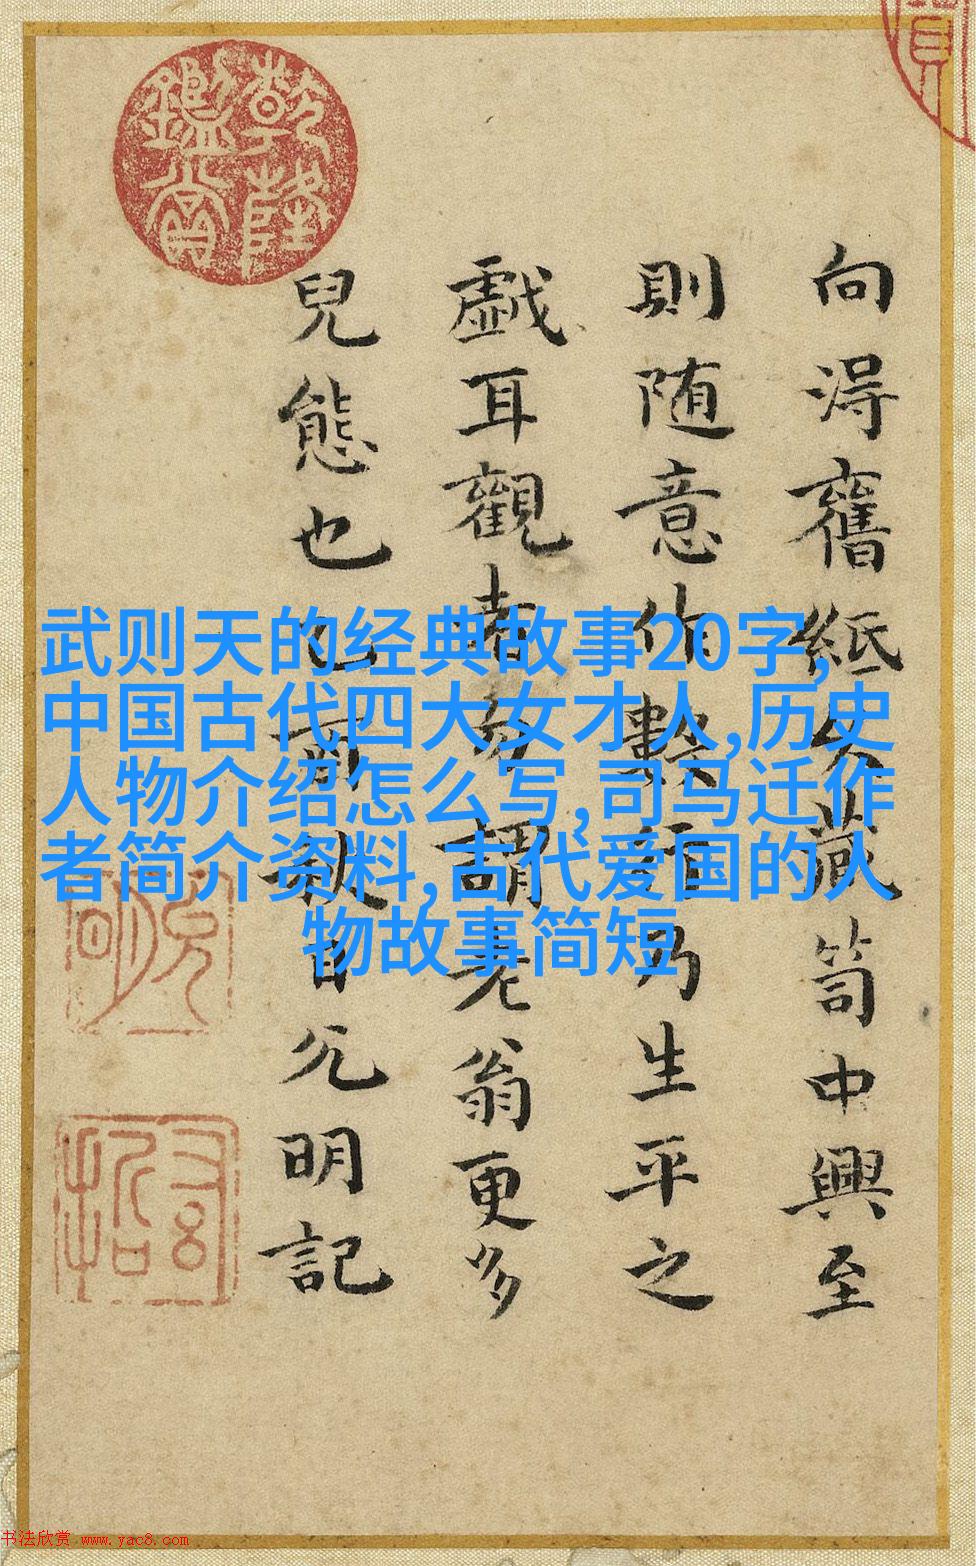 乾隆鑑賞
向得舊紙久藏笥中興至
則随意作數乃生平之
戲耳觀者勿謂老翁更多
兒態也秋日允明記
武则天的经典故事20字,
中国古代四大女才人,历史
人物介绍怎么写,司马迁作
者简介资料,古代爱国的人
物故事简短
书法欣赏 www.yac8.com